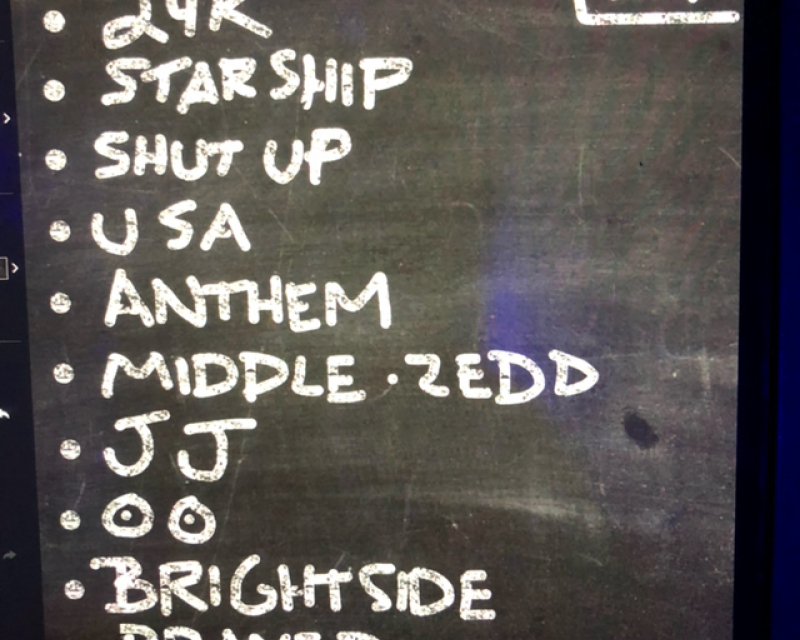 24K
STARSHIP
SHUT UP
USA
ANTHEM
MIDDLE · ZEDD
JJ
OO
BRIGHTSIDE